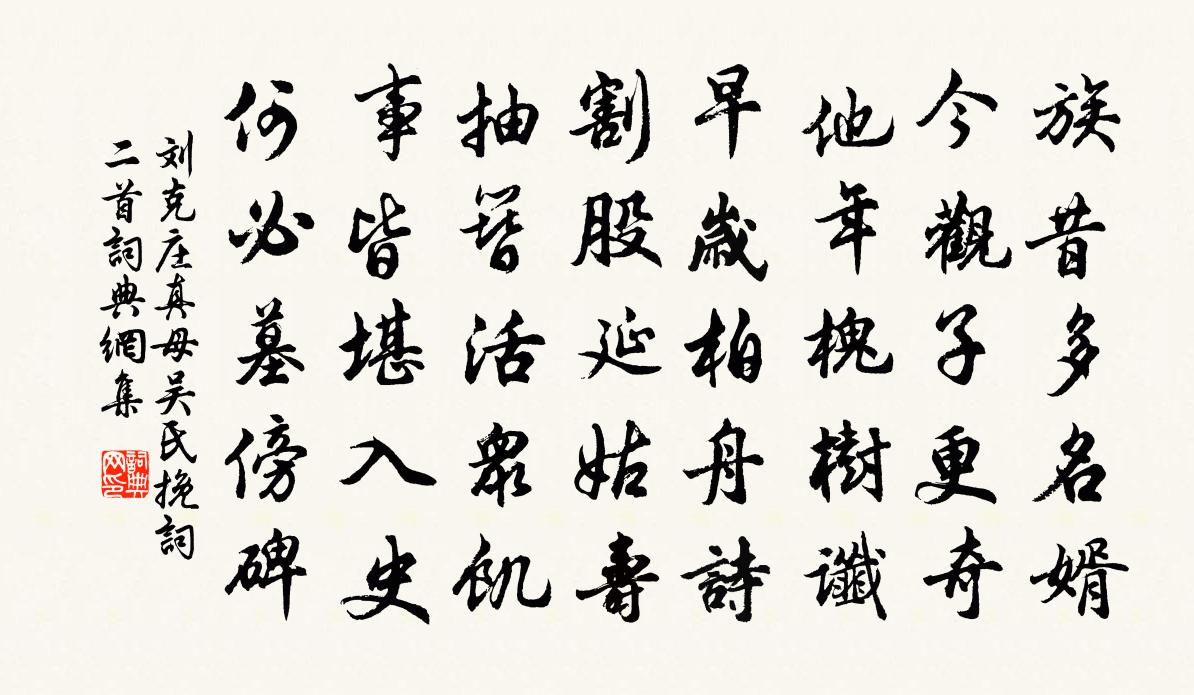 族昔多名婿
今觀子更奇
他年槐樹讖
早歲柏舟詩
割股延姑壽
抽簪活眾飢
事皆堪入史
何必墓傍碑
刘克庄真母吴氏挽詞
二首詞典網集
詞典
网印